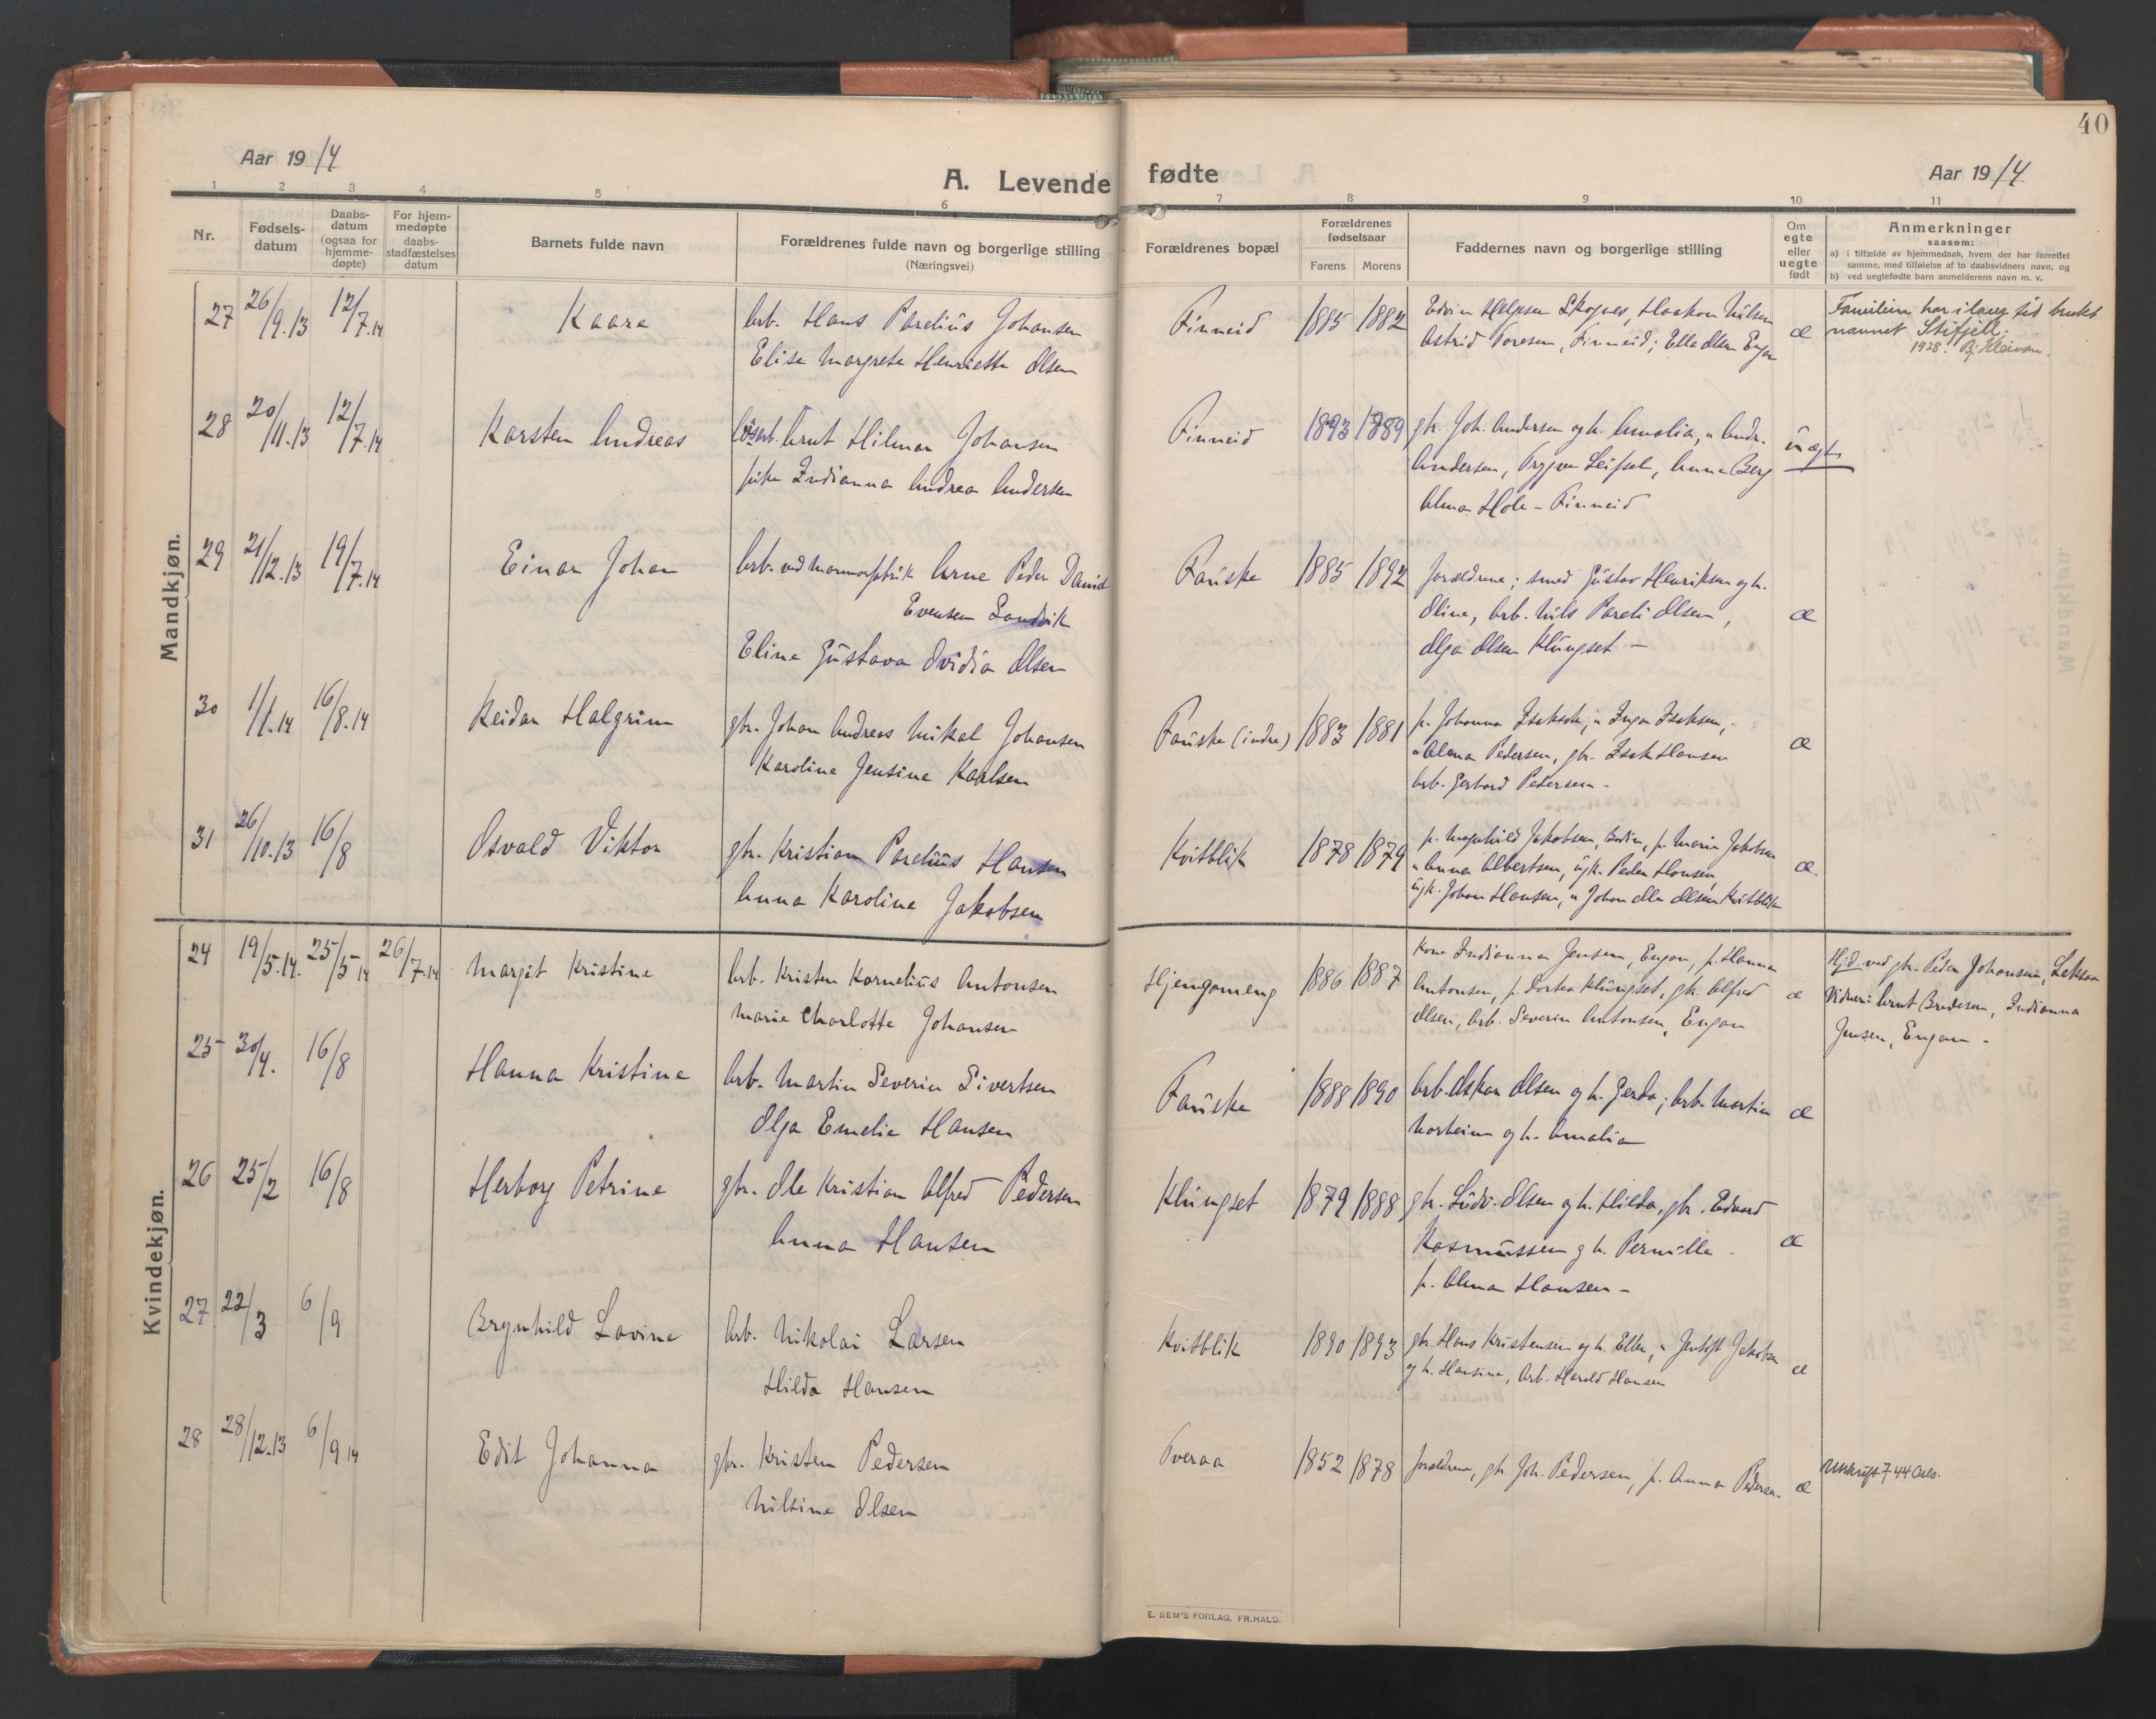 40
Aar 1914
A. Levende fødte
Aar 1914
1 2 3 4 5 6 7 8 9 10 11
Nr.
Fødsels-
datum
Daabs-
datum
(ogsaa for
hjemme-
døpte)
For hjem-
medøpte
daabs-
stadfæstelses
datum
Barnets fulde navn
Forældrenes fulde navn og borgerlige stilling
(Næringsvei)
Forældrenes bopæl
Forældrenes
fødselsaar
Farens Morens
Faddernes navn og borgerlige stilling
Om
egte
eller
uegte
født
Anmerkninger
saasom:
a) i tilfælde av hjemmedaab, hvem der har forrettet
samme, med tilføielse af to daabsvidners navn, og
b) ved uegtefødte barn anmelderens navn m. v.
Mandkjøn.
27 26/9.13 12/7.14 Kaare
Arb. Hans Parelius Johansen
Elise Margrete Henriette Olsen
Finneid 1885 1882
Edvin Helgesen Skognes, Haakon Nilsen
Astrid Toresen, Finneid; Elle Olsen Engan
æ
Familien har i lang tid brukt
navnet Stifjell.
1928. Bj. Kleivan.
28 20/11.13 12/7.14 Karsten Andreas
Løsarb. Arnt Hilmar Johansen
pike Indianna Andrea Andersen
Finneid 1893 1889
gbr. Joh. Andersen og h. Amalia, " Andr.
Andersen, Trygve Leifset, Anna Berg
Alma Hole - Finneid
uægt.
29 21/12.13 19/7.14 Einar Johan
Arb. ved marmorfabrik Arne Peder Daniel
Evensen Sandvik
Eline Gustava Ovidia Olsen
Fauske 1885 1892
forældrene; smed Gustav Henriksen og h.
Oline, arb. Nils Pareli Olsen,
Olga Olsen Klungset -
æ
30 1/1.14 16/8.14 Reidar Halgrim
gbr. Johan Andreas Mikal Johansen
Karoline Jensine Karlsen
Fauske (indre) 1883 1881
p. Johanna Isaksen, " Inga Isaksen,
" Alma Pedersen, gbr. Isak Hansen
arb. Gerhard Pedersen -
æ
31 26/10.13 16/8 Osvald Viktor
gbr. Kristian Parelius Hansen
Anna Karoline Jakobsen
Kvitblik 1878 1879
p. Magnhild Jakobsen, Bodin, p. Marie Jakobsen
" Anna Albertsen, ugk. Peder Hansen,
ugk. Johan Hansen, " Johan Ole Olsen Kvitblik
æ
Kvindekjøn.
24 19/5.14. 25/5 14 26/7.14 Margit Kristine
Arb. Kristen Kornelius Antonsen
Marie Charlotte Johansen
Hjengameng 1886 1887
Kone Indianna Jensen, Engan, p. Hanna
Antonsen, p. Dortea Klungset, gbr. Alfred
Olsen, Arb. Severin Antonsen, Engan
æ
Hj.d. ved gbr. Peder Johansen,
Vidner: Arnt Bredesen, Indianna
Jensen, Engan -
25 30/4. 16/8 Hanna Kristine
Arb. Martin Severin Sivertsen
Olga Emelie Hansen
Fauske 1888 1890
Arb. Oskar Olsen og h. Gerda; Arb. Martin
Norheim og h. Amalia
æ
26 25/2 16/8 Herborg Petrine
gbr. Ole Kristian Alfred Pedersen
Anna Hansen
Klungset 1879 1888
gbr. Ludv. Olsen og h. Hilda, gbr. Edvard
Rasmussen og h. Pernille -
p. Alma Hansen -
æ
27 22/3 6/9 Brynhild Lovine
Arb. Nikolai Larsen
Hilda Hansen
Kvitblik 1890 1893
gbr. Hans Kristensen og h. Ellen, " Jentoft Jakobsen
og h. Hansine, Arb. Harald Hansen
æ
28 28/12.13 6/9.14 Edit Johanna
gbr. Kristen Pedersen
Nilsine Olsen
Tveraa 1852 1878
forældrene, gbr. Joh. Pedersen, p. Anna Pedersen
æ
Utskrift 7/44 Oslo.
E. SEM'S FORLAG, FR.HALD.